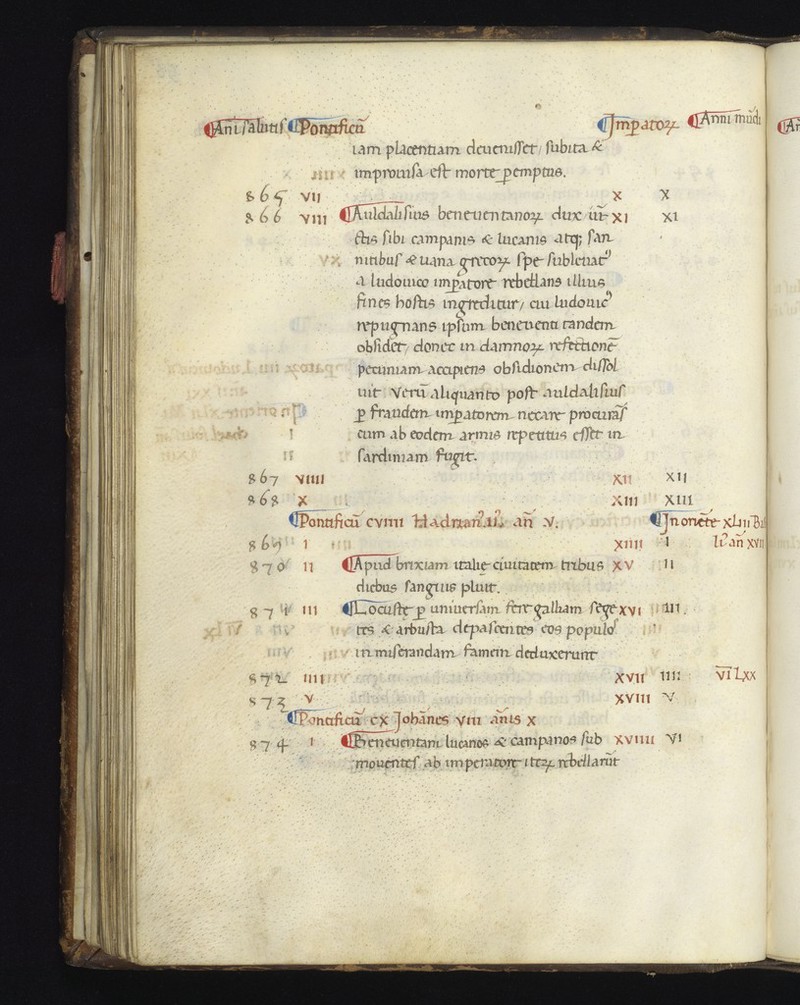 Anī salutis Pontificū Impatoꝝ Anni mūdi
iam placentiam deuenisset / subita &
improuisa est morte pemptus.
865 VII X X
866 VIII Auldalisius beneuentanoꝝ dux iū XI XI
ctis sibi campanis & lucanis atq; san
nitibus & uana grecoꝝ spe subleuat᾽
a ludouico impatore rebellans illius
fines hostis ingreditur / cui ludouic᾽
repugnans ipsum beneuenti tandem
obsidet / donec in damnoꝝ refectionē
pecuniam accipiens obsidionem dissol
uit Verū aliquanto post auldalisius
p fraudem impatorem necare procurās
cum ab eodem armis repetitus esset in
sardiniam fugit.
867 VIIII XII XII
868 X XIII XIII
Pontificū CVIIII Hadrian᾽ II᾽ an̄ V. In oriēte XLII Ba
869 I XIIII I li᾽ an̄ XVII
870 II Apud brixiam italię ciuitatem tribus XV II
diebus sanguis pluit.
871 III Locustę p uniuersam fere galliam sege XVI III
tes & arbusta depascentes eos populo᾽
in miserandam famem deduxerunt
872 IIII XVII IIII VI LXX
873 V XVIII V
Pontificū CX Johānes VIII an̄is X
874 I Beneuentani lucanos & campanos sub XVIIII VI
mouentes ab imperatore iteꝝ rebellarūt